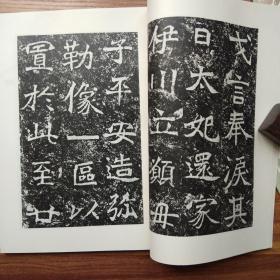 戈言奉淚其
日太妃還家
伊川立願母
子平安造弥
勒像一區以
置於此至廿